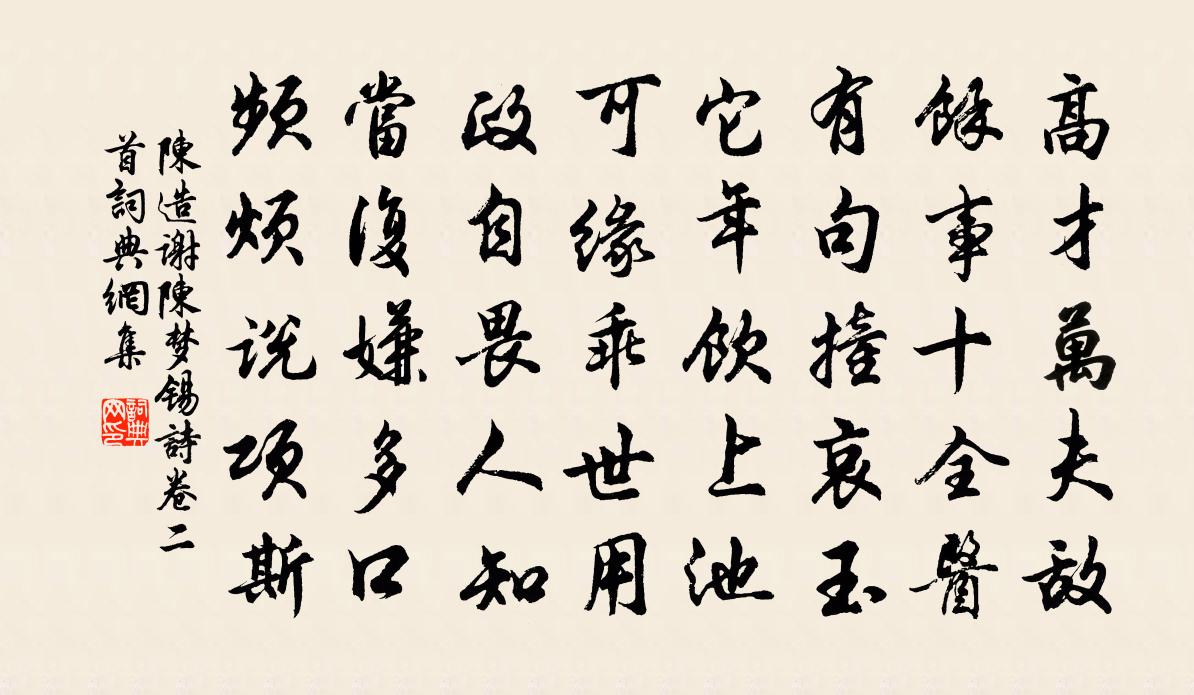 高才萬夫敵
餘事十全醫
有句撞哀玉
它年飲上池
可緣乖世用
政自畏人知
當復嫌多口
頻煩説項斯
陳造謝陳梦錫詩卷二
首詞典網集
詞典
网印